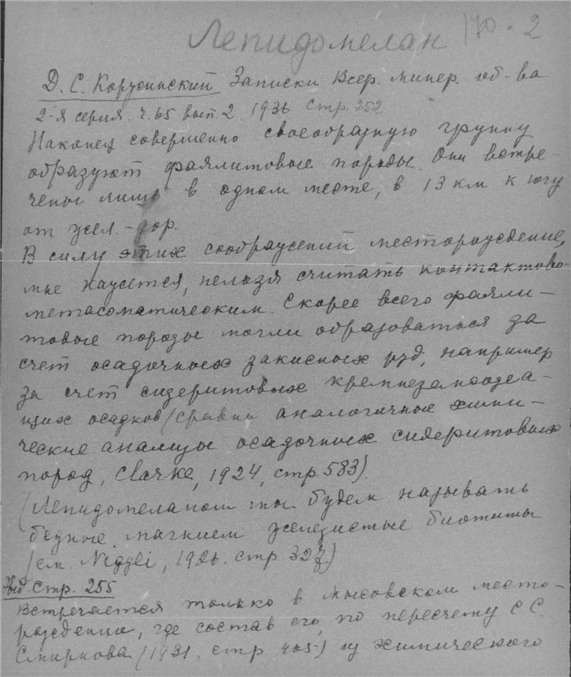 Лепидомелан 140-2
Д. С. Коржинский Записки Всер. минер. об-ва
2-я серия. ч. 65 вып. 2. 1936 стр. 252
Наконец совершенно своеобразную группу
образуют фаялитовые породы. Они встре-
чены лишь в одном месте, в 13 км к югу
от жел.-дор.
В силу этих соображений месторождение,
мне кажется, нельзя считать контактово-
метасоматическим. Скорее всего фаяли-
товые породы могли образоваться за
счет осадочных закисных руд, например
за счет сидеритовых кремнеземсодержа-
щих осадков (сравни аналогичные хими-
ческие анализы осадочных сидеритовых
пород, Clarke, 1924, стр 583).
(Лепидомеланом мы будем называть
бедные магнием железистые биотиты
(см. Niggli, 1926. стр 327)
стр. 255
Встречается только в Мысовском место-
рождении, где состав его, по пересчету С. С.
Смирнова (1931. стр. 405) из химического